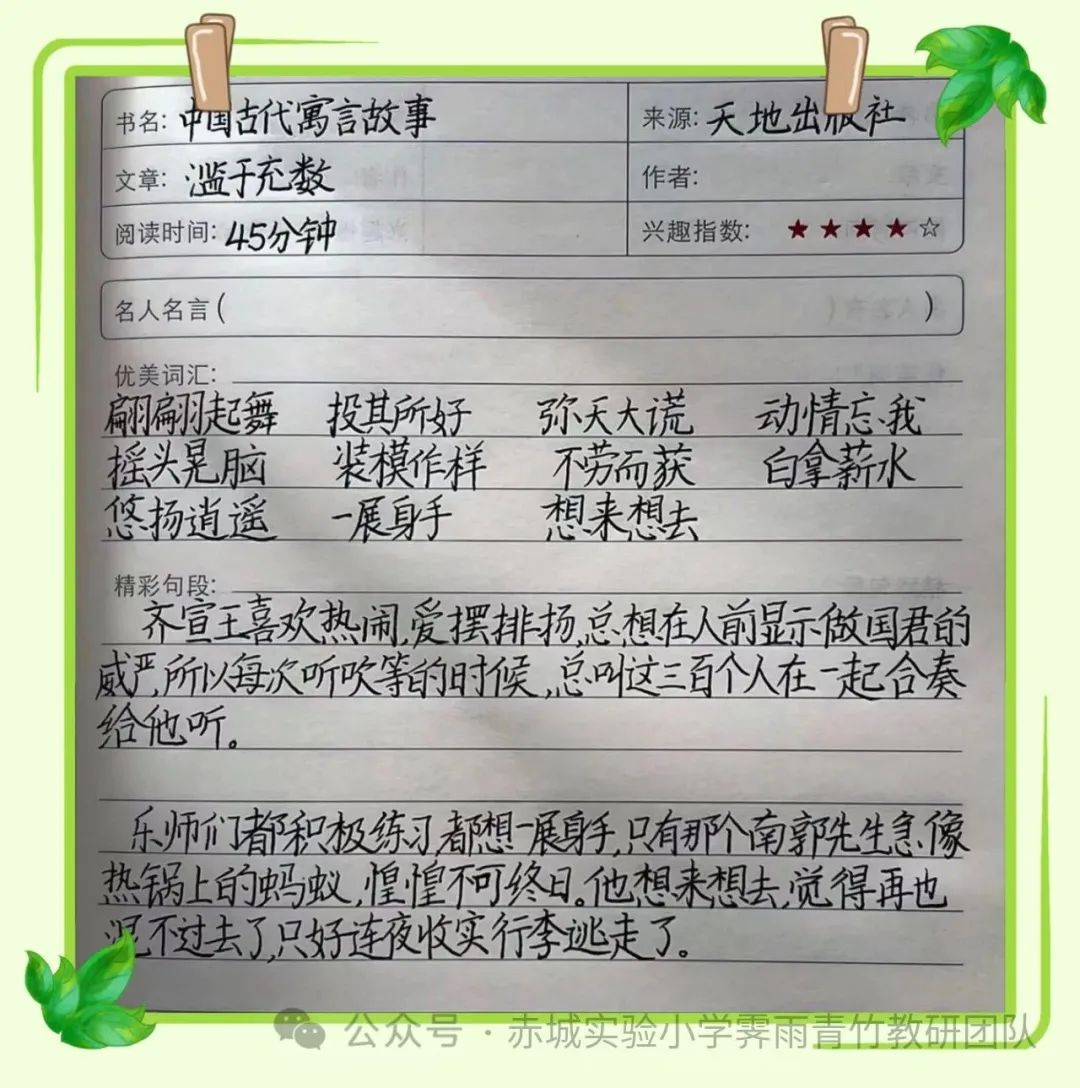 书名: 中国古代寓言故事 来源: 天地出版社
文章: 滥于充数 作者:
阅读时间: 45分钟 兴趣指数: ★★★★☆
名人名言( )
优美词汇:
翩翩起舞 投其所好 弥天大谎 动情忘我
摇头晃脑 装模作样 不劳而获 白拿薪水
悠扬逍遥 一展身手 想来想去
精彩句段:
齐宣王喜欢热闹,爱摆排扬,总想在人前显示做国君的
威严,所以每次听吹等的时候,总叫这三百个人在一起合奏
给他听。
乐师们都积极练习,都想一展身手,只有那个南郭先生急像
热锅上的蚂蚁,惶惶不可终日。他想来想去,觉得再也
混不过去了,只好连夜收实行李逃走了。
公众号 · 赤城实验小学霁雨青竹教研团队